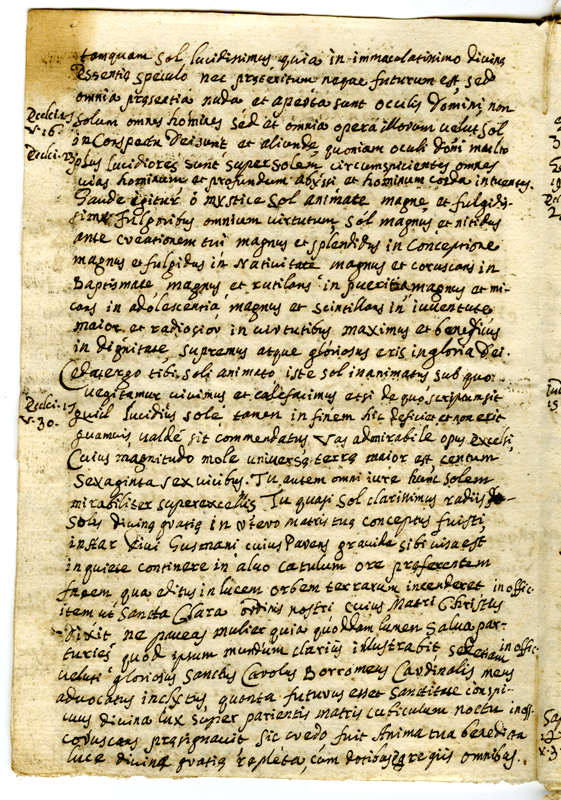 tanquam sol lucidissimus quia in immaculatissimo divinę
Essentię speculo nec pręteritum neque futurum est, sed
omnia pręsentia nuda et aperta sunt oculis Domini, non
Eccleci. 17
V. 16.
solum omnes homines sed et omnia opera illorum velut sol
in Conspectu Dei sunt et aliunde quoniam oculi Dñi multo
Eccleci. 23
plus lucidiores sunt super solem circumspicientes omnes
vias hominum et profundum abyssi et hominum corda intuentes.
Gaude igitur ò mystice Sol animate magne et fulgidis-
sime fulgoribus omnium virtutum, sol magnus et nitidus
ante creationem tui magnus et splendidus in Conceptione
magnus et fulgidus in Nativitate magnus et coruscans in
Baptismate magnus et rutilans in pueritia magnus et mi-
cans in adolescentia, magnus et scintillans in iuventute
maior et radiosior in virtutibus maximus et benedicus
in dignitate, supremus atque gloriosus eris in gloria Dei.
Cedat ergo tibi soli animato iste sol inanimatus sub quo
vegitamur vivimus et calefacimus etsi de quo scriptum sit
Eccleci. 17
V. 30.
quid lucidius sole tamen in finem hic deficiet et non erit
quamvis valdé sit commendatus Vas admirabile opus excelsi,
Cuius magnitudo mole universę terrę maior est centum
Sexaginta sex vicibus. Tu autem omni iure hunc solem
mirabiliter superexcellis Tu quasi Sol clarissimus radiis
Solis divinę gratię in utero matris tuę conceptus fuisti,
instar Divi Gusmani cuius Parens gravida sibi visa est
inquiete continere in alvo catulum ore pręferentem
facem qua editus in lucem orbem terrarum incenderet
in offic.
item ut Sancta Clara ordinis nostri cuius Matri Christus
dixit ne paveas mulier quia quoddam lumen salva par-
turies quod ipsum mundum clarius illustrabit sed etiam
in offic.
veluti gloriosus Sanctus Carolus Borromeus Cardinalis meus
advocatus inclytus, quanta futurus esset Sanctitate conspi-
cuus divina lux super parientis matris cubiculum noctu
in offi.
coruscans pręsignavit sic credo fuit Anima tua benedicta
luce divinę gratię repleta, cum dotibus egregiis omnibus.